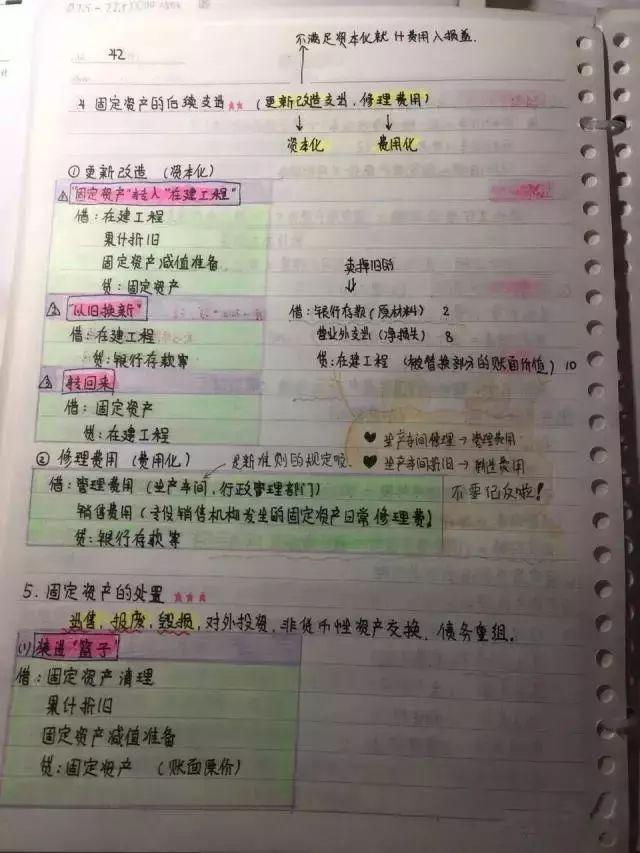 不满足资本化就计费用入损益.
42
4 固定资产的后续支出 ★★ (更新改造支出, 修理费用)
资本化 费用化
① 更新改造 (资本化)
△ "固定资产"转入"在建工程"
借: 在建工程
累计折旧
固定资产减值准备
贷: 固定资产
卖掉旧的
"以旧换新"
借: 在建工程
贷: 银行存款等
借: 银行存款 (原材料) 2
营业外支出 (净损失) 8
贷: 在建工程 (被替换部分的账面价值) 10
转回来
借: 固定资产
贷: 在建工程
♥ 生产车间修理→管理费用
♥ 生产车间折旧→制造费用
不要记反啦!
② 修理费用 (费用化) 是新准则的规定哎.
借: 管理费用 (生产车间, 行政管理部门)
销售费用 (专设销售机构发生的固定资产日常修理费)
贷: 银行存款等
5. 固定资产的处置 ★★★
出售, 报废, 毁损, 对外投资, 非货币性资产交换, 债务重组.
(1) 装进"篮子"
借: 固定资产清理
累计折旧
固定资产减值准备
贷: 固定资产 (账面原价)